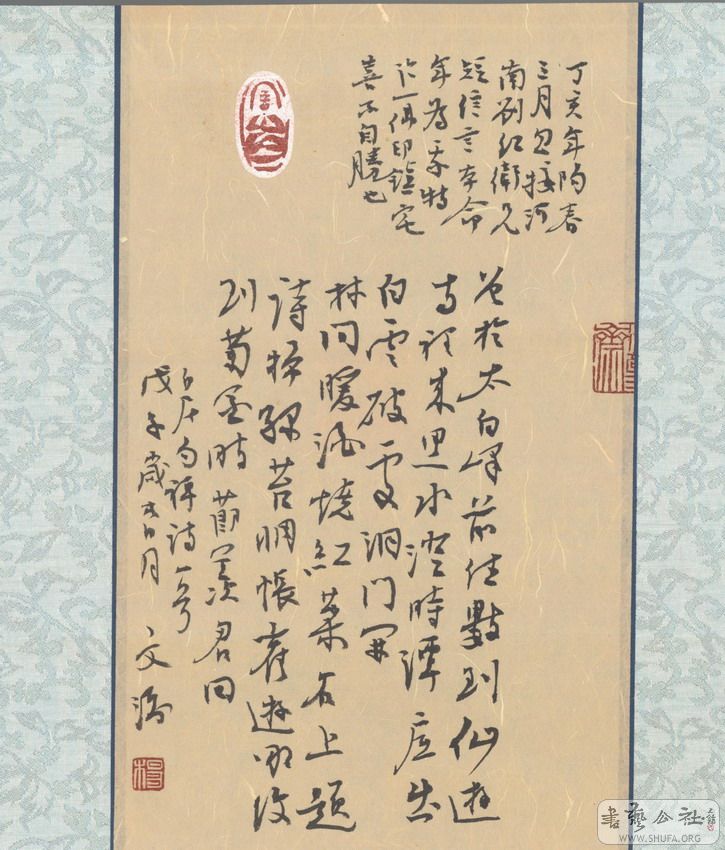 丁亥年陽春
三月忽接河
南劉紅衛兄
短信言本命
年為我特
治一佛印鎮宅
喜不自勝也
曾於太白峰前住數到仙遊
寺裡來黑水澄時潭底出
白雲破處洞門開
林間暖酒燒紅葉石上題
詩掃綠苔惆悵舊遊那復
到菊花時節羨君回
白居易禪詩一首
戊子歲 月 文濤
楊
書藝公社
WWW.SHUFA.ORG